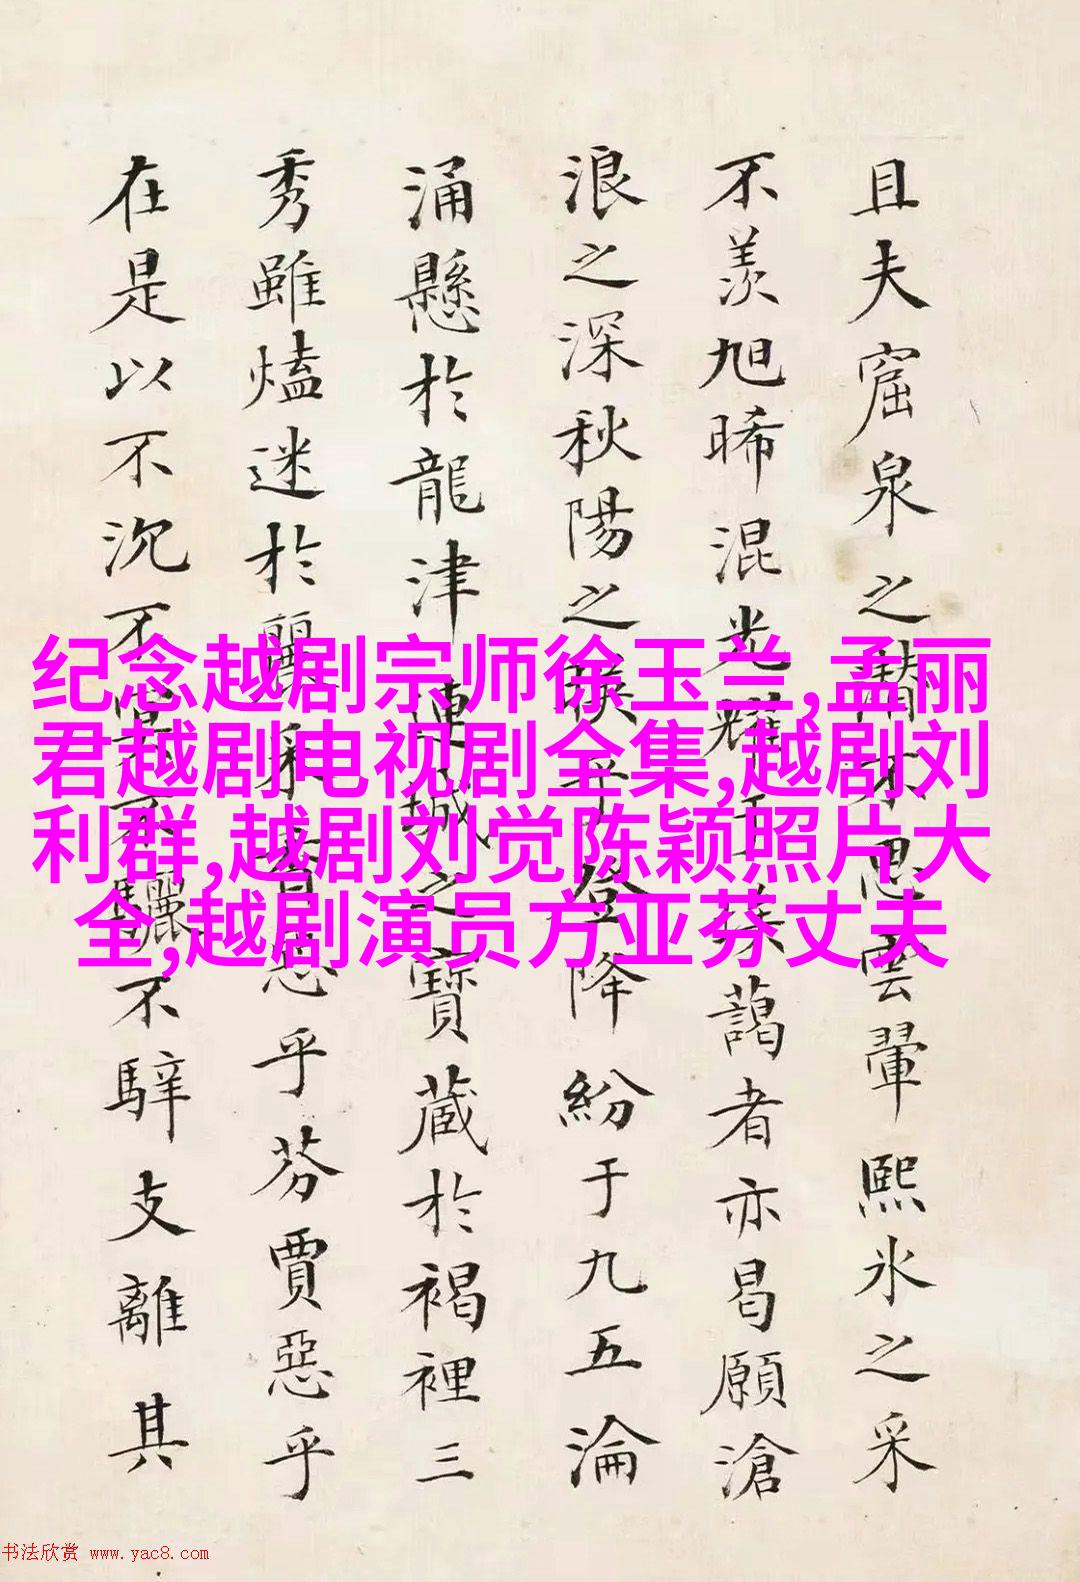 且夫窟泉之潛不思雲翬熙氷之采
不羨旭晞混光耀于扶藹者亦曷願滄
浪之深秋陽之映乎登降紛于九五淪
涌懸於龍津連城之寶蔵於褐裡三
秀雖熆迷於麗采香惡乎芬賈惡乎
在是以不沉不冥不驪不騂支離其
纪念越剧宗师徐玉兰,孟丽
君越剧电视剧全集,越剧刘
利群,越剧刘觉陈颖照片大
全,越剧演员方亚芬丈夫
书法欣赏 www.yac8.com